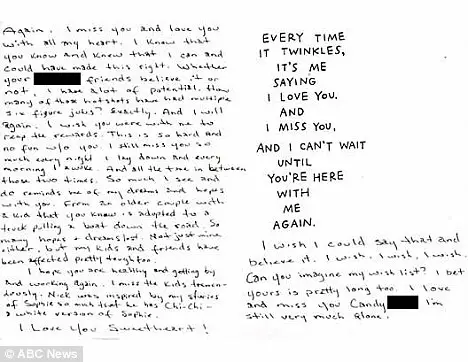 Again, I miss you and love you
with all my heart. I know that
you know and knew that I can and
could have made this right. Whether
your friends believe it or
not, I have a lot of potential. How
many of those hotshots have had multiple
six figure jobs? Exactly. And I will
again. I wish you were with me to
reap the rewards. This is so hard and
no fun w/o you. I still miss you so
much every night I lay down and every
morning I awake. And all the time in between
those two times. So much I see and
do reminds me of my dreams and hopes
with you. From an older couple with
a kid that you know is adopted to a
truck pulling a boat down the road. So
many hopes + dreams lost. Not just mine
either, but my kids and friends have
been affected pretty tough too.
I hope you are healthy and getting by
and working again. I miss the kids tremen-
dously. Nick was inspired by my stories
of Sophie so much that he has Chi-Chi -
a white version of Sophie.
I Love You Sweetheart!
EVERY TIME
IT TWINKLES,
IT'S ME
SAYING
I LOVE YOU.
AND
I MISS YOU,
AND I CAN'T WAIT
UNTIL
YOU'RE HERE
WITH
ME
AGAIN.
I wish I could say that and
believe it. I wish, I wish, I wish.
Can you imagine my wish list? I bet
yours is pretty long too. I love
and miss you Candy I'm
still very much alone.
© ABC News